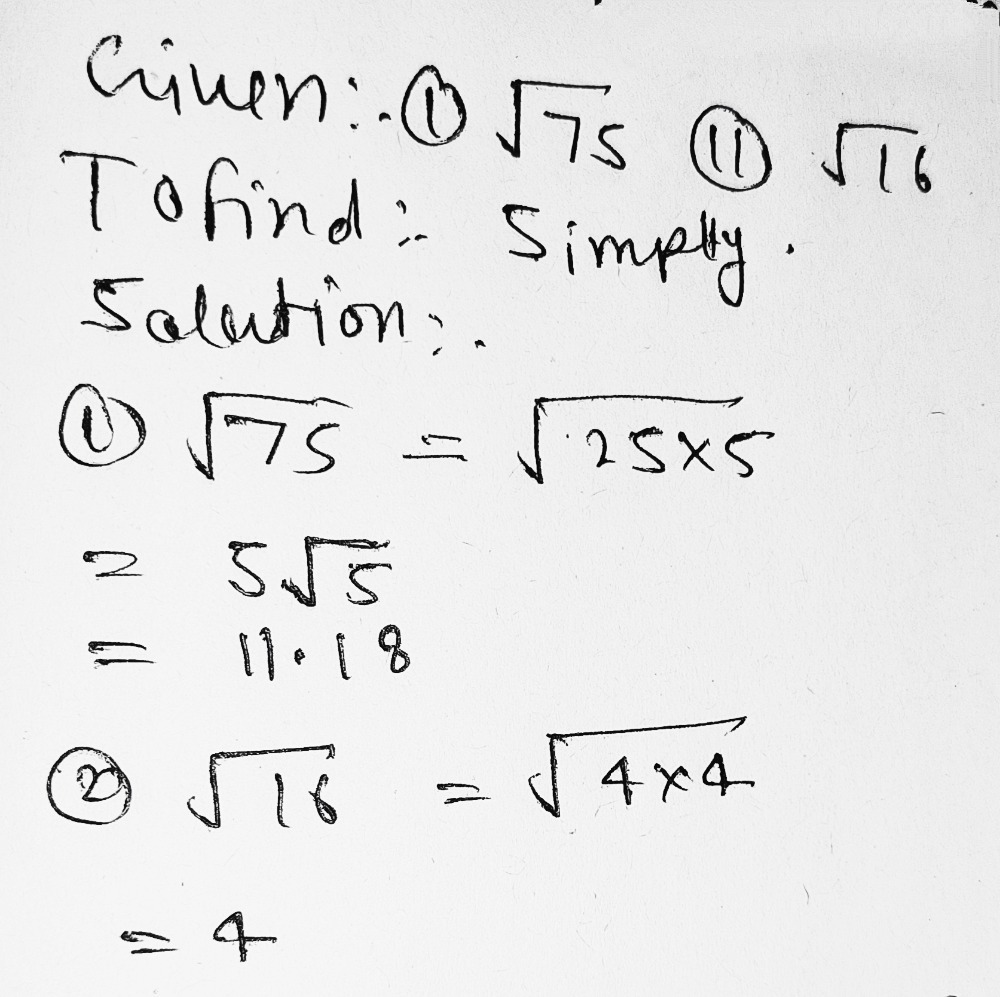 Given:- ① √75 ⑪ √16
To find:- Simply.
Solution:-
① √75 = √25×5
= 5√5
= 11.18
② √16 = √4×4
= 4